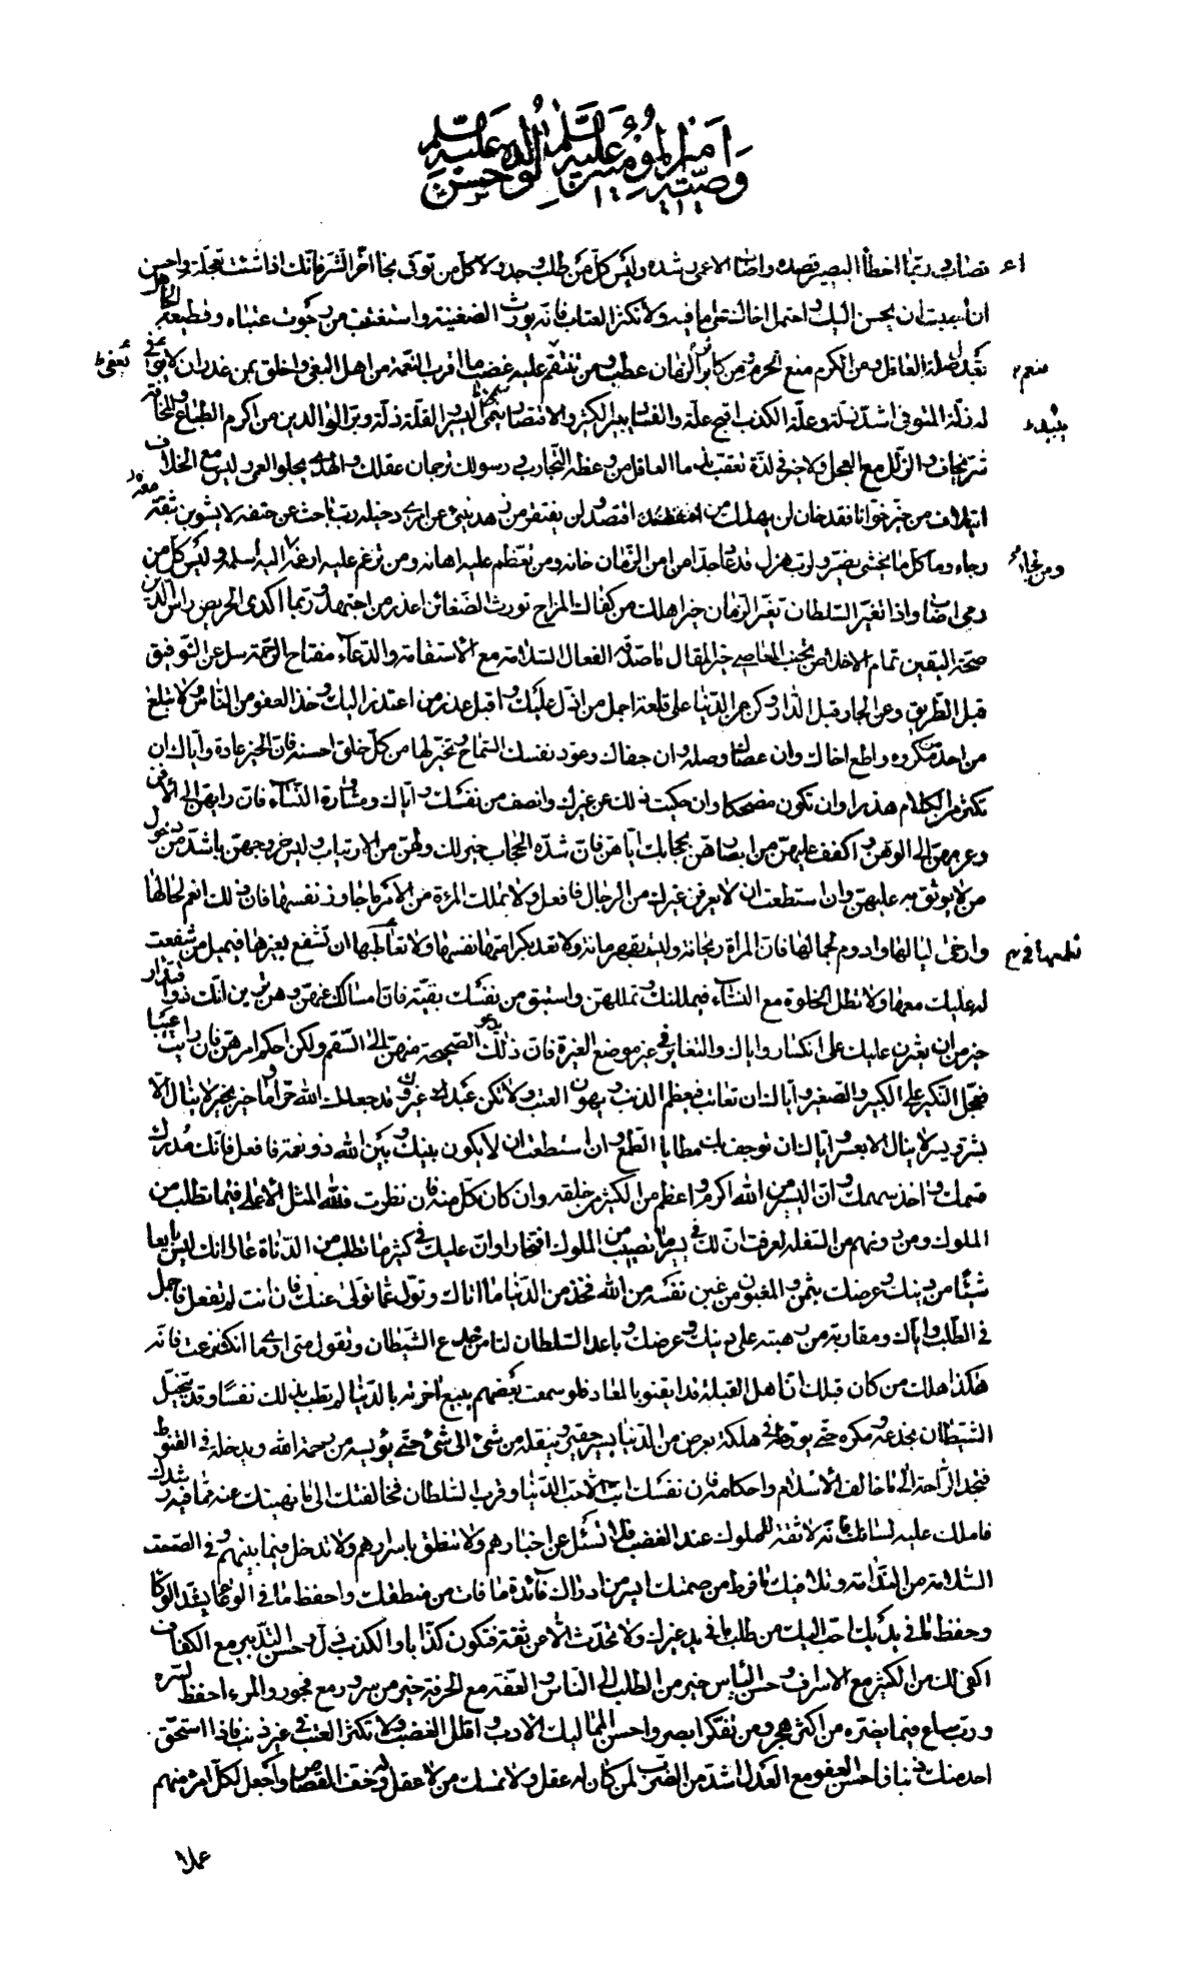 وصيته امير المؤمنين عليه السلم لولده حسن عليه السلم
تصاب وربما اخطأ البصير قصده واصاب الاعمى رشده وليس كل من طلب وجد ولا كل من توقى نجا اخر الشر فانك اذا شئت تعجلته واحسن
ان احببت ان يحسن اليك واحتمل اخاك على ما فيه ولا تكثر العتاب فانه يورث الضغينة واستعتب من رجوت عتباه وقطيعة الجاهل
تعدل صلة العاقل ومن الكرم منع الحزم ومن كابر الزمان عطب ومن تنقم عليه غضب ما اقرب النقمة من اهل البغي واخلق بمن غدر ان لا يوفى
له زلة المتوقي اشد زلة وعلة الكذب اقبح علة والفساد يبير الكثير والاقتصاد ينمي اليسير والقلة ذلة وبر الوالدين من اكرم الطباع
شر يخاف والزلل مع العجل ولا خير في لذة تعقب ندما العاقل من وعظه التجارب ورسولك ترجمان عقلك والهدى يجلو العمى وليس مع الخلاف
ايتلاف من خبر خوانا فقد خان لن يهلك من اقتصد ولن يفتقر من زهد ينبئ عن امرء دخيله رب باحث عن حتفه لا يشوبن بثقة
رجاء وما كل ما يخشى يضر ولرب هزل قد عاد جدا من امن الزمان خانه ومن تعظم عليه اهانه ومن ترغم عليه ارغمه ومن لجأ اليه اسلمه وليس كل من
رمى اصاب واذا تغير السلطان تغير الزمان خير اهلك من كفاك المزاح تورث الضغائن اعذر من اجتهد وربما اكدى الحريص راس الدين
صحة اليقين تمام الاخلاص تجنب المعاصي خير المقال ما صدقه الفعال السلامة مع الاستقامة والدعاء مفتاح الرحمة سل عن الرفيق
قبل الطريق وعن الجار قبل الدار وكن من الدنيا على قلعة احمل من ادل عليك واقبل عذر من اعتذر اليك وخذ العفو من الناس ولا تبلغ
من احد مكروهه واطع اخاك وان عصاك وصله وان جفاك وعود نفسك السماح وتخير لها من كل خلق احسنه فان الخير عادة واياك ان
تكثر من الكلام هذرا وان تكون مضحكا وان حكيت ذلك عن غيرك وانصف من نفسك واياك ومشاورة النساء فان رايهن الى الافن
وعزمهن الى الوهن واكفف عليهن من ابصارهن بحجابك اياهن فان شدة الحجاب خير لك ولهن من الارتياب وليس خروجهن باشد من دخول
من لا يوثق به عليهن وان استطعت ان لا يعرفن غيرك من الرجال فافعل ولا تملك المرءة من الامر ما جاوز نفسها فان ذلك انعم لحالها
وارخى لبالها وادوم لجمالها فان المراة ريحانة وليست بقهرمانة ولا تعد بكرامتها نفسها ولا تعاطيها ان تشفع لغيرها فيميل من شفعت
له عليك معها ولا تطل الخلوة مع النساء فيمللنك وتمللهن واستبق من نفسك بقية فان امساكك عنهن وهن يرين انك ذو اقتدار
خير من ان يعثرن عليك على انكسار واياك والتغاير في غير موضع الغيرة فان ذلك يدعو الصحيحة منهن الى السقم ولكن احكم امرهن فان رايت عيبا
فعجل النكير على الكبير والصغير واياك ان تعاتب فيعظم الذنب ويهون العتب ولا تكن عبد غيرك وقد جعلك الله حرا وما خير بخير لا ينال الا
بشر ويسر لا ينال الا بعسر واياك ان توجف بك مطايا الطمع وان استطعت ان لا يكون بينك وبين الله ذو نعمة فافعل فانك مدرك
قسمك واخذ سهمك وان اليسير من الله اكرم واعظم من الكثير من خلقه وان كان كل منه فان نظرت فلله المثل الاعلى فيما تطلب من
الملوك ومن دونهم من السفلة لعرفت ان لك في يسير ما تصيب من الملوك افتخارا وان عليك في كثير ما تطلب من الدناة عارا انك ليس بايعا
شيئا من دينك وعرضك بثمن والمغبون من غبن نفسه من الله فخذ من الدنيا ما اتاك وتول عما تولى عنك فان انت لم تفعل فاجمل
في الطلب واياك ومقاربة من رهبته على دينك وعرضك وباعد السلطان لتامن خدع الشيطان وتقول متى ارى ما انكر نزعت فانه
هكذا هلك من كان قبلك ان اهل القبلة قد ايقنوا بالمعاد فلو سمعت بعضهم يبيع اخرته بالدنيا لم تطب بذلك نفسا وقد يتخبل
الشيطان بخدعه ومكره حتى يورطه في هلكة بعرض من الدنيا يسير حقير وينقله من شئ الى شئ حتى يؤيسه من رحمة الله ويدخله في القنوط
فيجد الراحة الى ما خالف الاسلام واحكامه فان نفسك ابت الا حب الدنيا وقرب السلطان فخالفتك الى ما نهيتك عنه مما فيه رشدك
فاملك عليه لسانك فانه لا ثقة للملوك عند الغضب فلا تسئل عن اخبارهم ولا تنطق باسرارهم ولا تدخل فيما بينهم وفي الصمت
السلامة من الندامة وتلافيك ما فرط من صمتك ايسر من ادراك فائدة ما فات من منطقك واحفظ ما في الوعاء بشد الوكا
وحفظ ما في يديك احب اليك من طلب ما في يد غيرك ولا تحدث الا عن ثقة فتكون كذابا والكذب ذل وحسن التدبير مع الكفاف
اكفى لك من الكثير مع الاسراف وحسن اليأس خير من الطلب الى الناس والعفة مع الحرفة خير من سرور مع فجور والمرء احفظ لسره
ورب ساع فيما يضره من اكثر هجر ومن تفكر ابصر واحسن للمماليك الادب واقلل الغضب ولا تكثر العتب في غير ذنب فاذا استحق
احد منك ذنبا فاحسن العفو مع العدل اشد من الضرب لمن كان له عقل ولا تمسك من لا عقل له وخف القصاص واجعل لكل امرء منهم
عملا